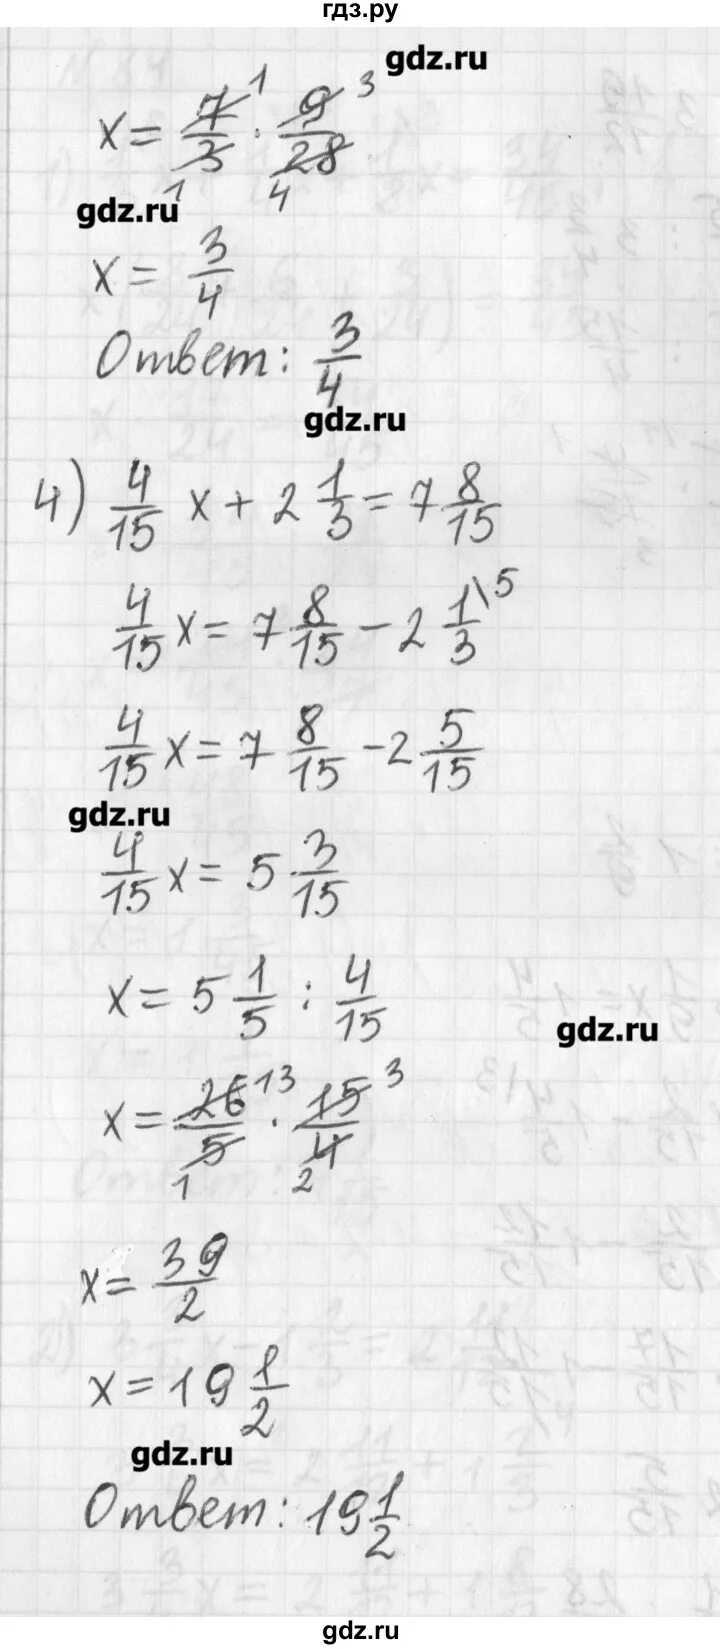 гдз.ру
gdz.ru
x = 7/3 · 9/28 1 3 1 4
gdz.ru
x = 3/4
Ответ: 3/4
gdz.ru
4) 4/15 x + 2 1/3 = 7 8/15
4/15 x = 7 8/15 - 2 1/3 \5
4/15 x = 7 8/15 - 2 5/15
gdz.ru
4/15 x = 5 3/15
x = 5 1/5 : 4/15
gdz.ru
x = 26/5 · 15/4 13 3 1 2
x = 39/2
x = 19 1/2
gdz.ru
Ответ: 19 1/2
gdz.ru